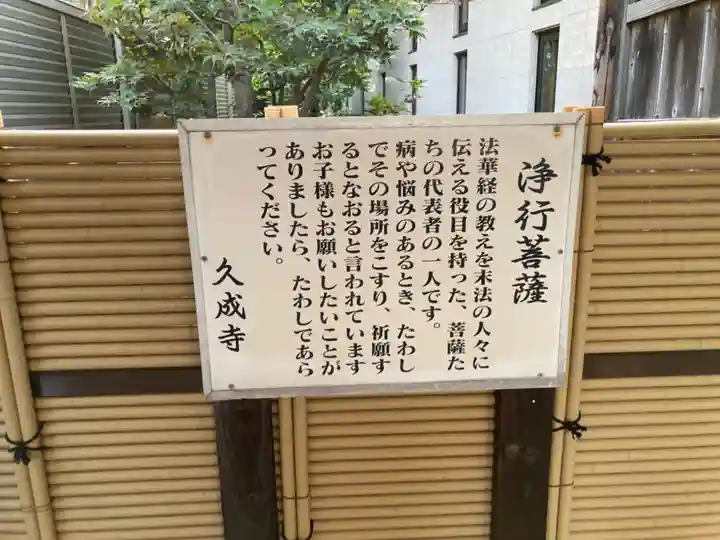 浄行菩薩
法華経の教えを末法の人々に
伝える役目を持った、菩薩た
ちの代表者の一人です。
病や悩みのあるとき、たわし
でその場所をこすり、祈願す
るとなおると言われています
お子様もお願いしたいことが
ありましたら、たわしであら
ってください。
久成寺